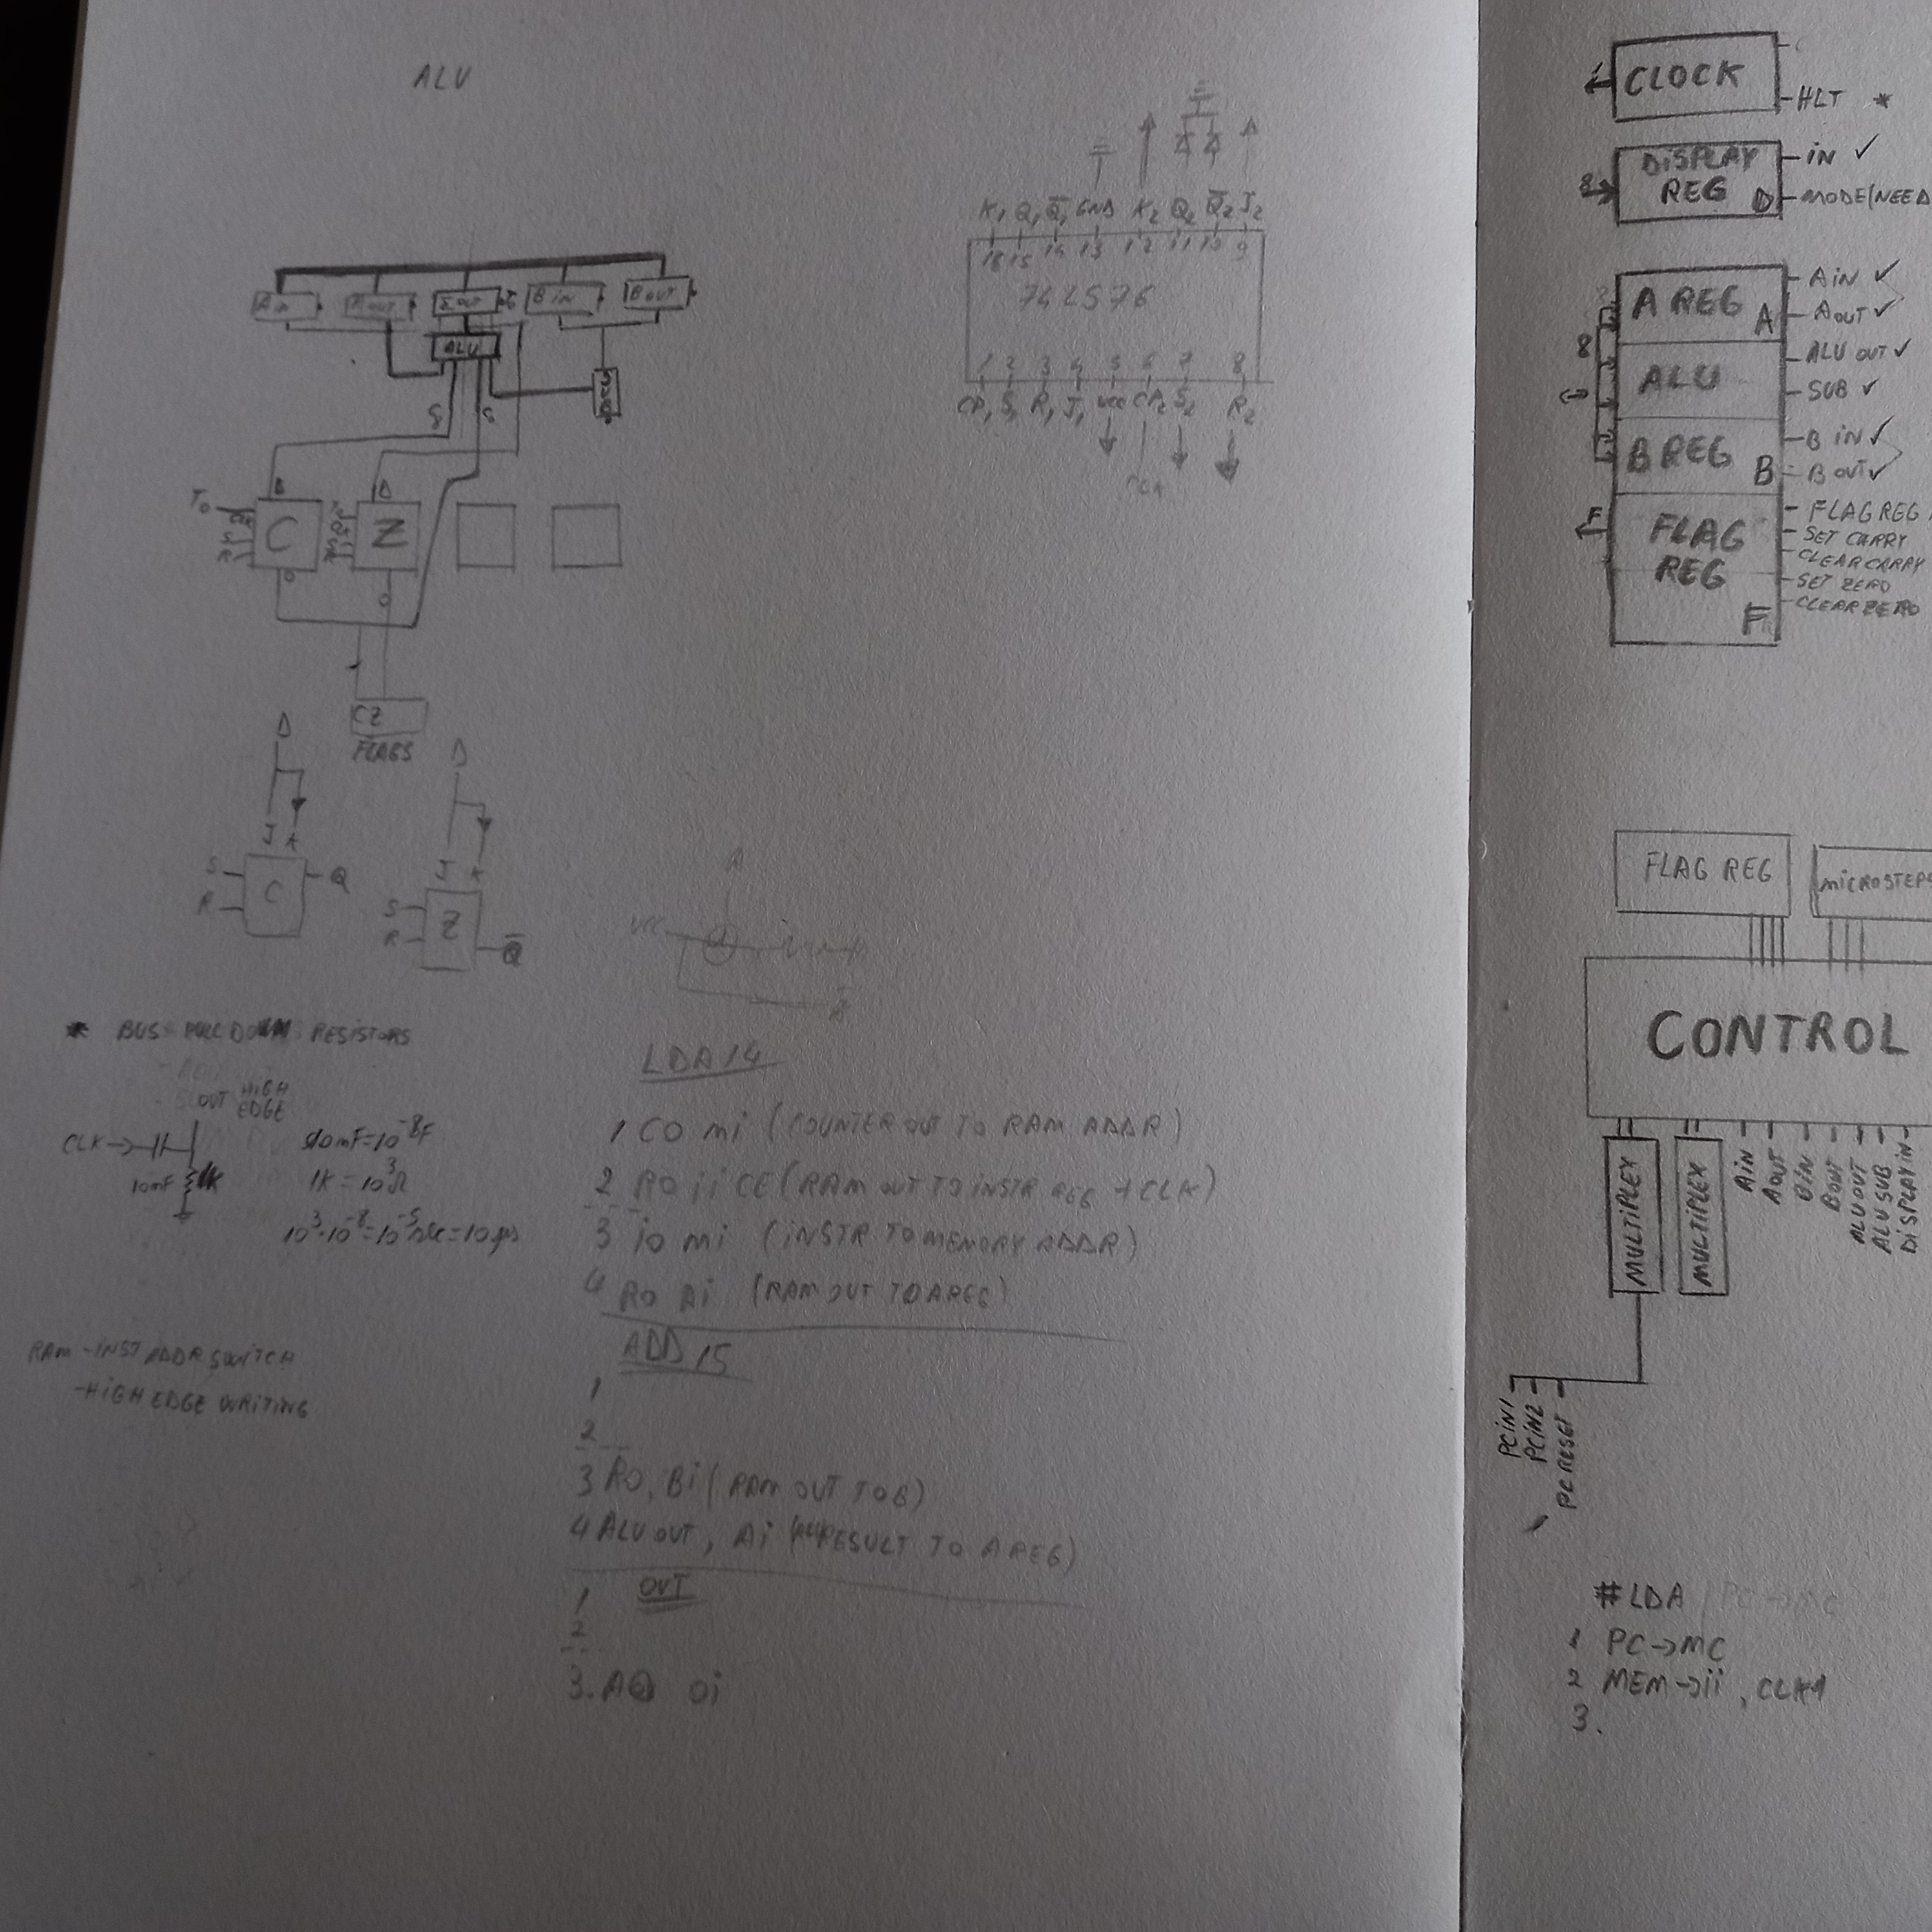 ALU
Bin
BOUT
ALU
SUB
8
8
D
D
C
Z
S
R
CZ
FLAGS
D
J
K
S
R
C
Q
D
J
K
S
R
Z
Q̅
* BUS - PULL DOWN RESISTORS
HIGH
EDGE
CLK →
10nF
1K
10nF = 10⁻⁸F
1K = 10³Ω
10³·10⁻⁸ = 10⁻⁵ sec = 10µs
RAM - INST ADDR SWITCH
- HIGH EDGE WRITING
K₁ Q₁ Q̅₁ GND K₂ Q₂ Q̅₂ J₂
16 15 14 13 12 11 10 9
74LS76
1 2 3 4 5 6 7 8
CP₁ S₁ R₁ J₁ VCC CP₂ S₂ R₂
LDA 14
1 CO mi (COUNTER OUT TO RAM ADDR)
2 RO ii CE (RAM OUT TO INSTR REG + CLK)
3 iO mi (INSTR TO MEMORY ADDR)
4 RO Ai (RAM OUT TO A REG)
ADD 15
1
2
3 RO, Bi (RAM OUT TO B)
4 ALU OUT, Ai (RESULT TO A REG)
OUT
1
2
3. AO Oi
CLOCK
-HLT *
8
DISPLAY
REG D
-IN ✓
-MODE (NEED
A REG A
-AIN ✓
-AOUT ✓
8
ALU
-ALU OUT ✓
-SUB ✓
B REG B
-B IN ✓
-B OUT ✓
F
FLAG
REG F
-FLAG REG
-SET CARRY
-CLEAR CARRY
-SET ZERO
-CLEAR ZERO
FLAG REG
MICROSTEPS
CONTROL
MULTIPLEX
MULTIPLEX
PCIN1
PCIN2
PC RESET
AIN
AOUT
BIN
BOUT
ALU OUT
ALU SUB
DISPLAY IN
#LDA
1 PC→MC
2 MEM→ii,
3.